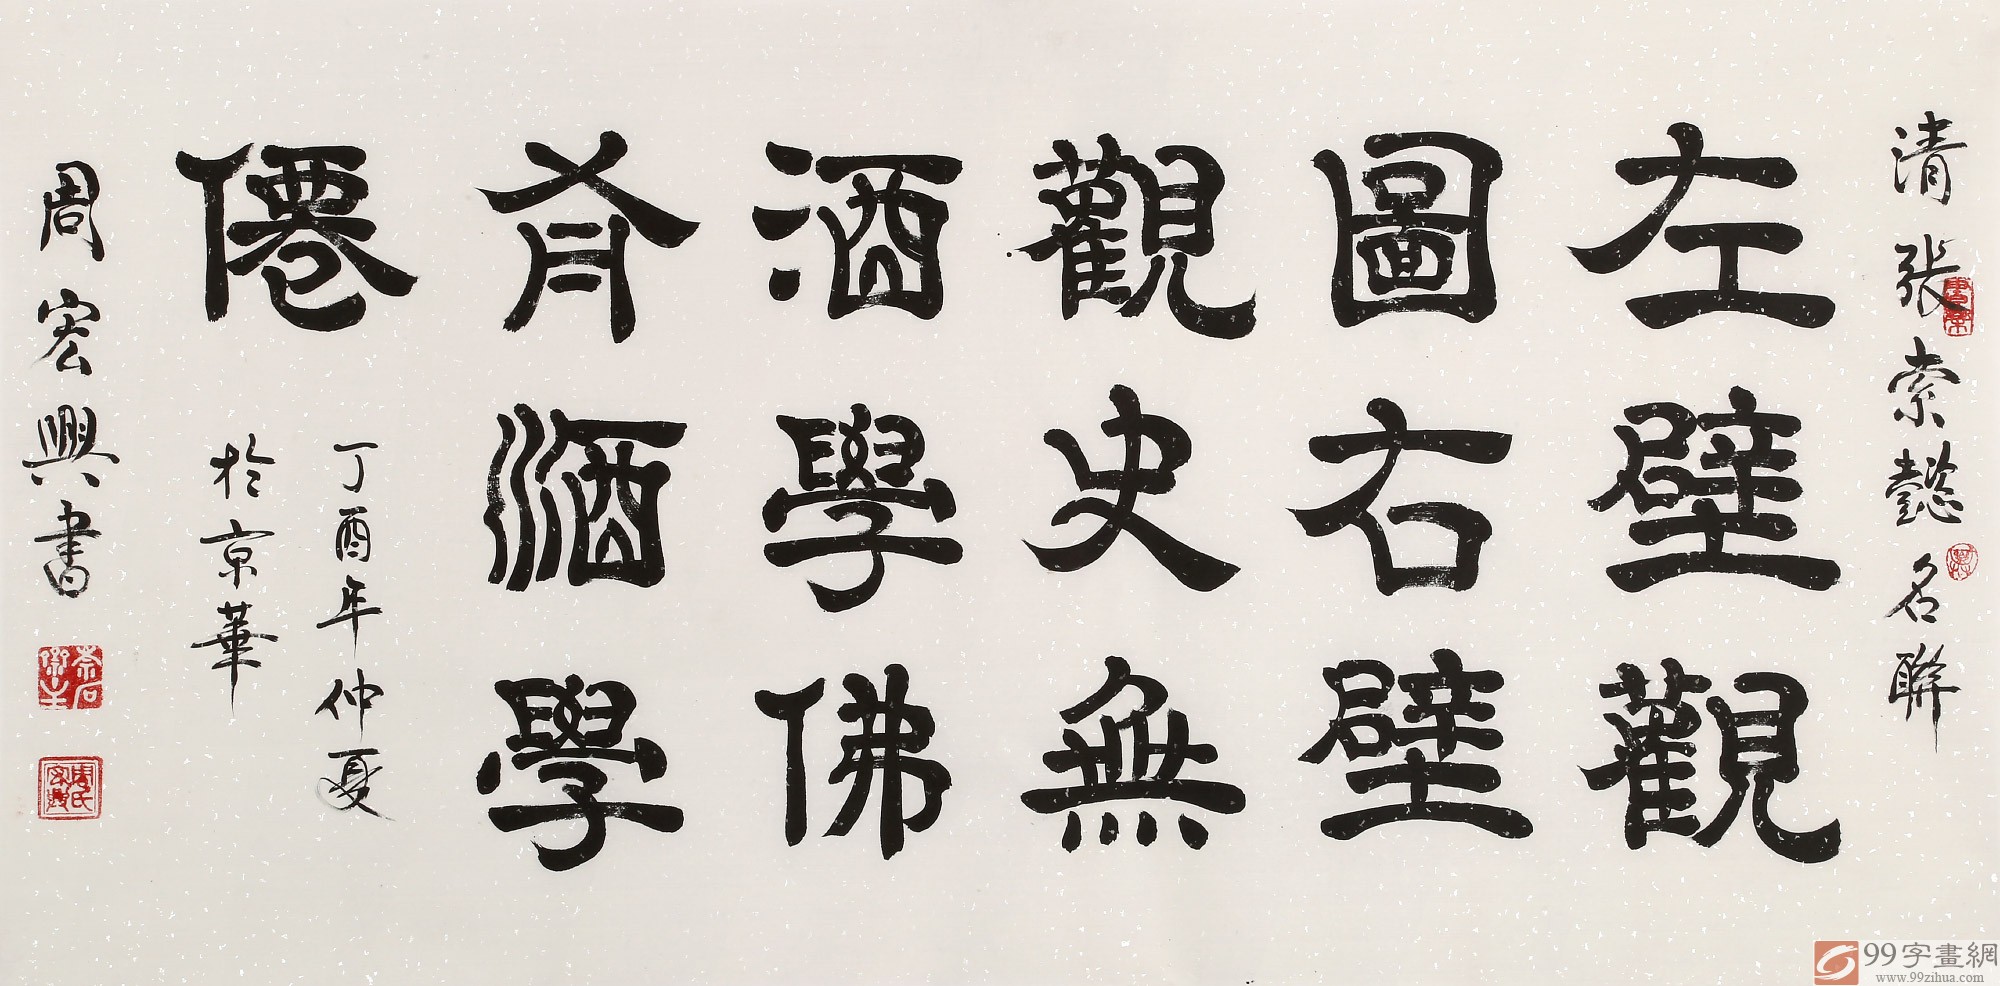 清張索懿名聯
左壁觀
圖右壁
觀史無
酒學佛
有酒學
僊
丁酉年仲夏
於京華
周宏興書
99字畫網
www.99zihua.com